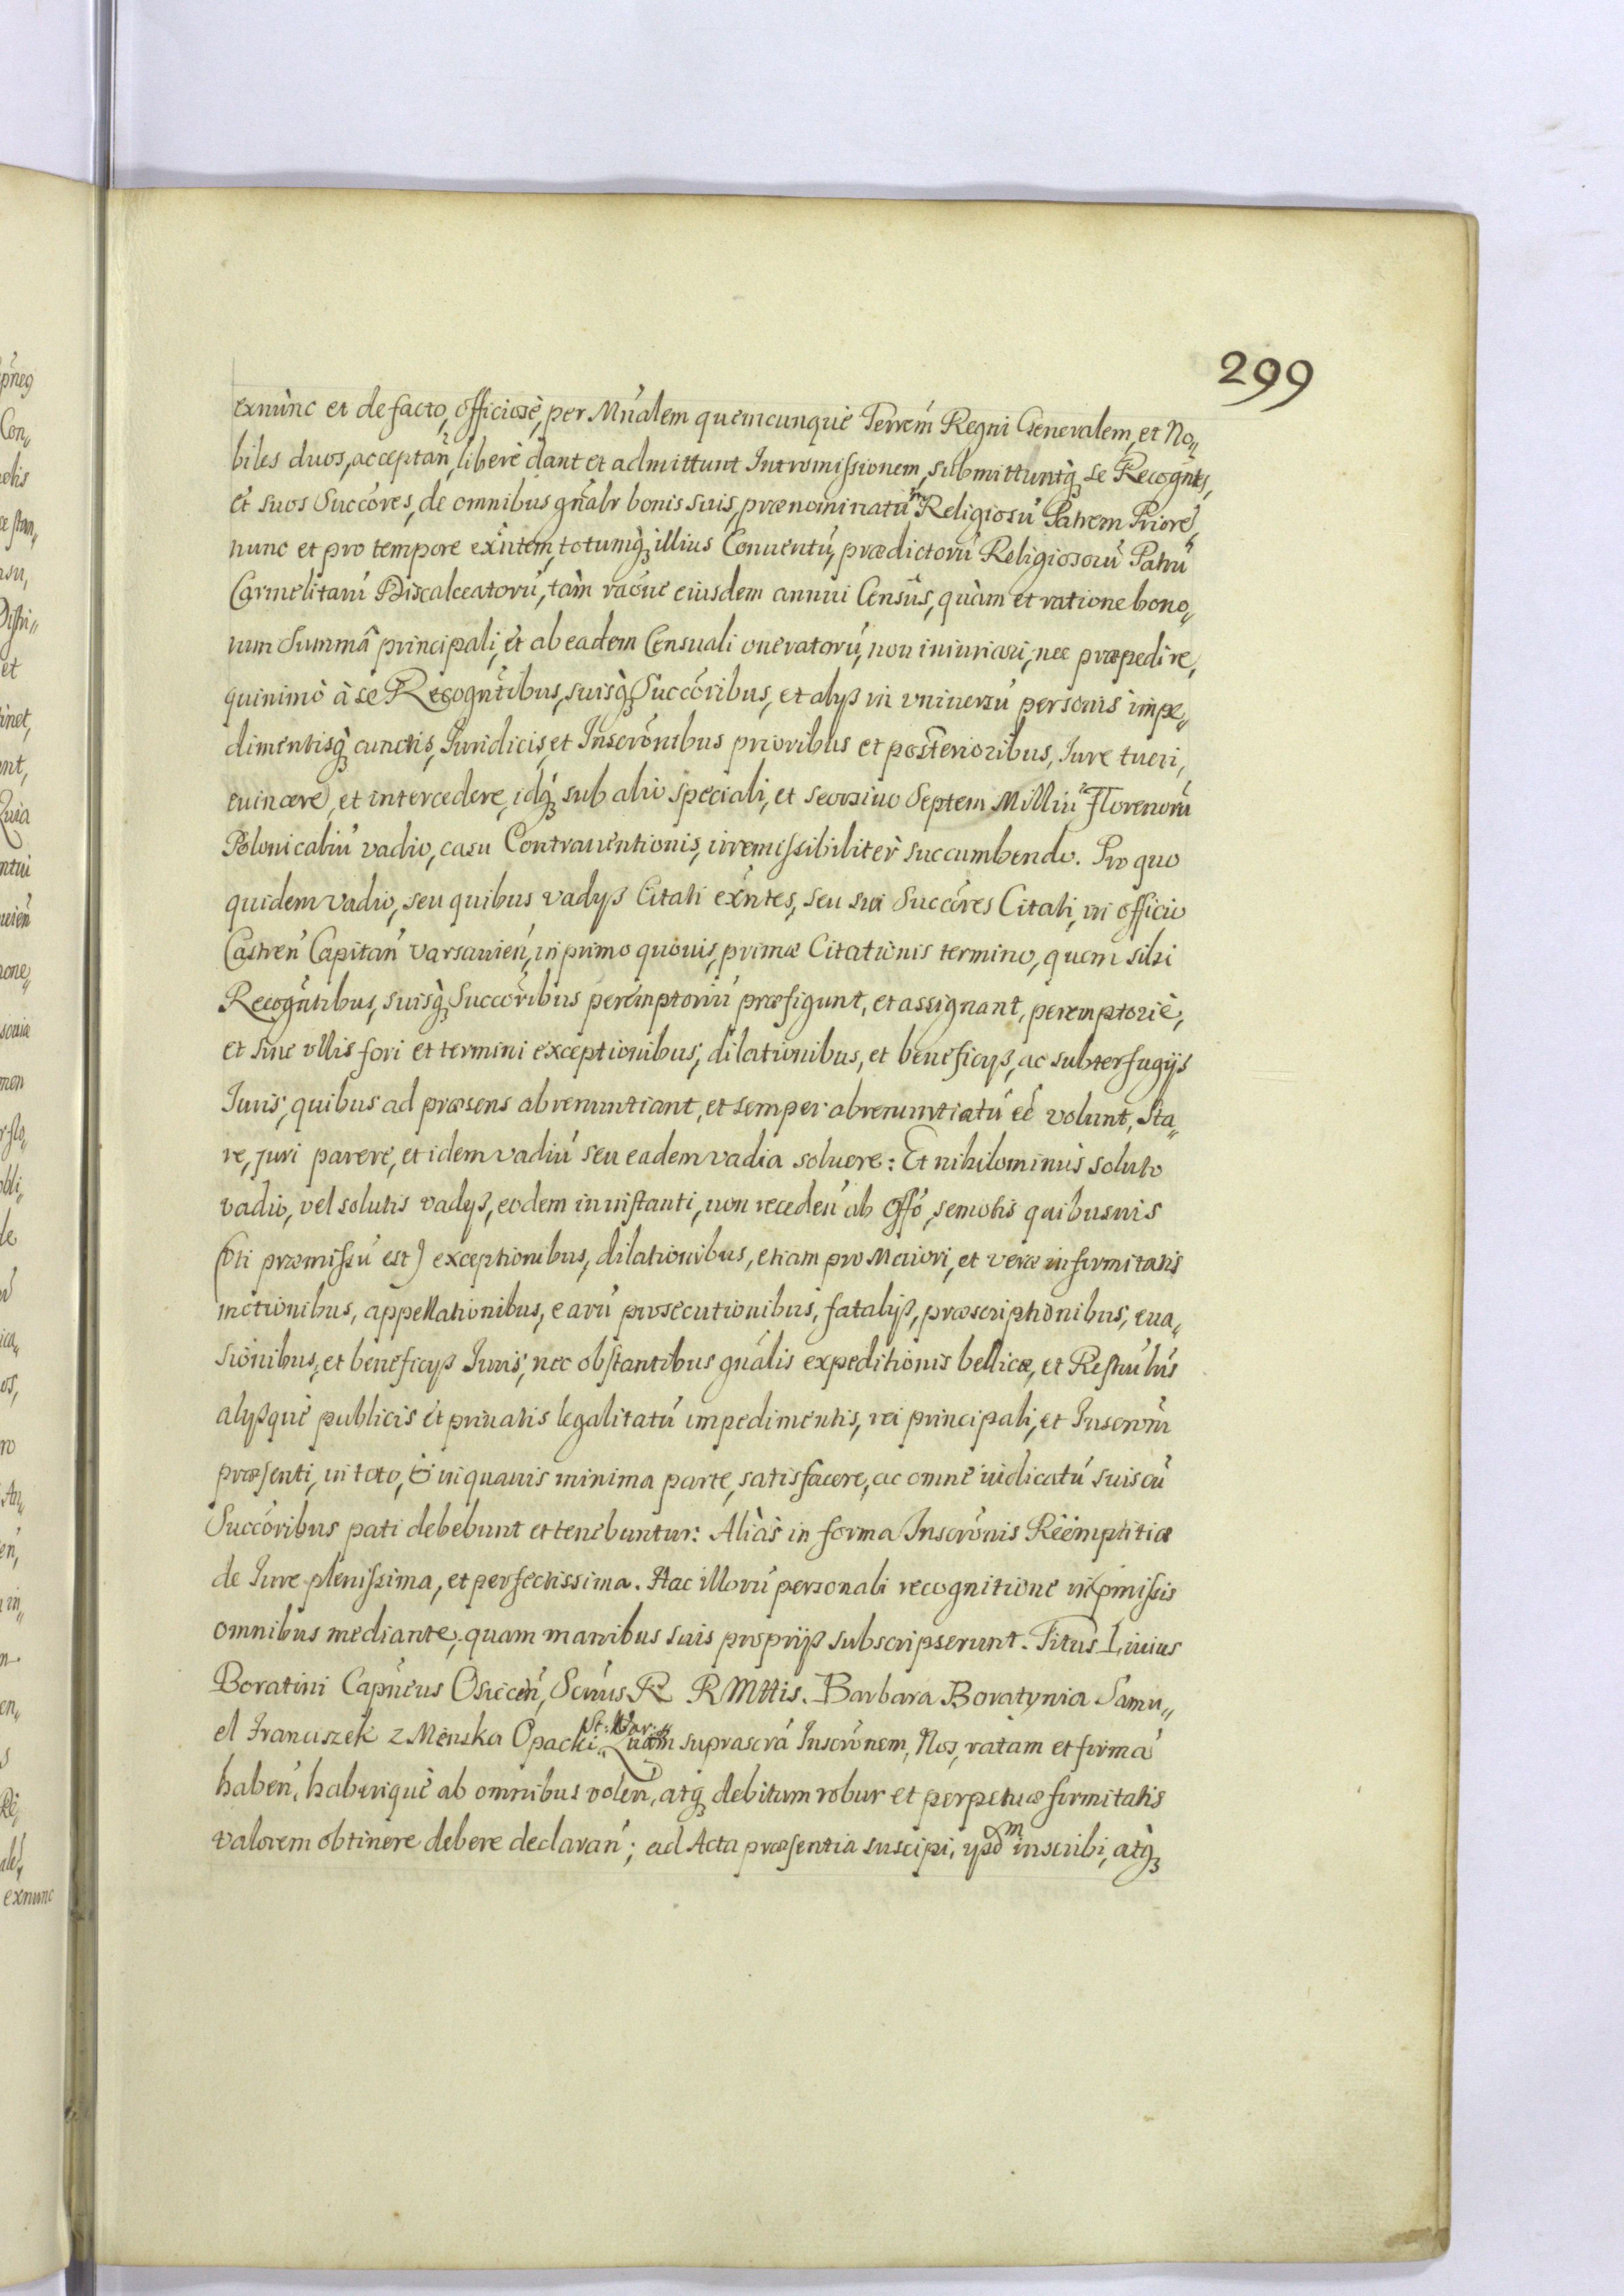 299
exnùnc et de facto, officiosè, per Mńalem quemcunquè Terrém Regni Generalem, et No„
biles duos, acceptań, liberè dant et admittunt Intromissionem, submittuntq́ se Recognt̃s,
et suos Succóres, de omnibus gn̄alr bonis suis, prænominatū Religiosū Patrem Priorē,
nunc et pro tempore exn̄tem, totumq́ illius Conuentū, prædictorū Religiosorū Patrū
Carmelitarū Discalceatorū, tàm raōne eiusdem annui Censûs, quàm et ratione bono„
rum Summâ principali, et ab eadem Censuali oneratorū, non iniuriari, nec præpedire,
quinimò à se Recogn̄tibus, suisq́ Succóribus, et alijs in vniuersū personis impe„
dimentisq́ cunctis, Juridicis, et Inscrōnibus prioribus et posterioribus, Iure tueri,
euincere, et intercedere, idq́ sub alio speciali, et seorsiuo Septem Milliū Florenorū
Polonicaliū vadio, casu Contrauentionis, irremissibilitèr succumbendo. Pro quo
quidem vadio, seu quibus vadijs Citati exn̄tes, seu sui Succóres Citati, in officio
Castreń Capitań Varsauień, in primo quouis, primæ Citationis termino, quem sibi
Recogn̄tibus, suisq́ Succóribus perémptoriū præfigunt, et assignant, peremptoriè,
et sine vllis fori et termini exceptionibus, dilationibus, et beneficijs, ac subterfugijs
Iuris, quibus ad præsens abrenuntiant, et semper abrenuntiatū eē volunt, Sta„
re, juri parere, et idem vadiū seu eadem vadia soluere: Et nihilominùs soluto
vadio, vel solutis vadijs, eodem in instanti, non recedeń ab Offó, semotis quibusuis
(vti præmissū est) exceptionibus, dilationibus, etiam pro Maiori, et veræ infirmitatis
inctionibus, appellationibus, earū prosecutionibus, fatalijs, præscriptionibus, eua„
sionibus, et beneficijs Iuris, nec obstantibus gn̄alis expeditionis bellicæ, et
alijsquè publicis et priuatis legalitatū impedimentis, rei principali, et Inscrōni
præsenti, in toto, & in quauis minima parte, satisfacere, ac omne iudicatū suis cū
Succóribus pati debebunt et tenebuntur: Aliàs in forma Inscrōnis Reémptitiæ
de Iure plenissima, et perfectissima. Hac illorū personali recognitione in p̄missis
omnibus mediante, quam manibus suis proprijs subscripserunt. Titus Liuius
Boratini Capn̄eus Osiecéń, S R Mttis. Barbara Boratynia Samu„
el Franciszek z Mińska Opacki St: War: Quam suprascrā Inscrōnem, Nos, ratam et firmā
habeń, haberiquè ab omnibus voleń, atq́ debitum robur et perpetuæ firmitatis
valorem obtinere debere declarań; ad Acta præsentia suscipi, ijsdm inscribi, atq́
exnunc